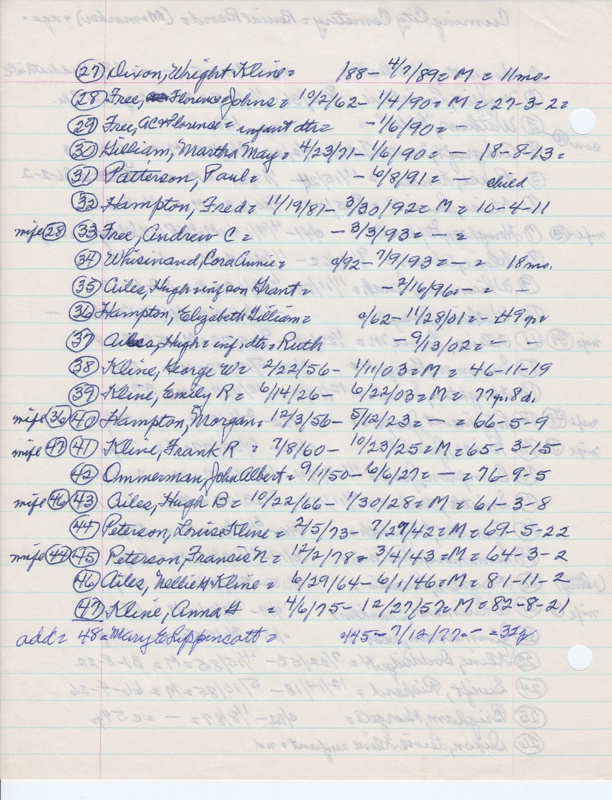 (27) Dixon, Wright Kline = /88 - 4/7/89 = M = 11 mo.
(28) Free, Florence Johns = 10/2/62 - 1/4/90 = M = 27-3-2 =
(29) Free, AC & Florence = infant dtr = - 1/6/90 = -
(30) Gilliam, Martha May = 4/23/71 - 1/6/90 = - 18-8-13 =
(31) Patterson, Paul = - 6/8/91 = - child
(32) Hampton, Fred = 11/19/81 - 3/30/92 = M = 10-4-11
wife (28) (33) Free, Andrew C = - 3/3/93 = - =
(34) Whisinand, Cora Annie = 9/92 - 7/9/93 = - 18 mo.
(35) Ailes, Hugh = inf son Grant = - 2/16/96 = - =
(36) Hampton, Elizabeth Gilliam = c/62 - 11/28/01 = - 49 yr =
(37) Ailes, Hugh = inf. dtr = Ruth - 9/13/02 = - -
(38) Kline, George W = 2/22/56 - 1/11/03 = M = 46-11-19
(39) Kline, Emily R = 6/14/26 - 6/22/03 = M = 77y. 8d.
wife (36) (40) Hampton, Morgan = 12/3/56 - 5/12/23 = - = 66-5-9
wife (47) (41) Kline, Frank R = 7/8/60 - 10/23/25 = M = 65-3-15
(42) Ommerman, John Albert = 9/1/50 - 6/6/27 = - = 76-9-5
wife (46) (43) Ailes, Hugh B = 10/22/66 - 1/30/28 = M = 61-3-8
(44) Peterson, Louise Kline = 2/5/73 - 7/27/42 = M = 69-5-22
wife (44) (45) Peterson, Francis N = 12/2/78 = 3/4/43 = M = 64-3-2
(46) Ailes, Nellie H Kline = 6/29/64 - 6/1/46 = M = 81-11-2
(47) Kline, Anna H = 4/6/75 - 12/27/57 = M = 82-8-21
add = 48 = Mary E Lippincott = c/45 - 7/12/77 = - = 32y